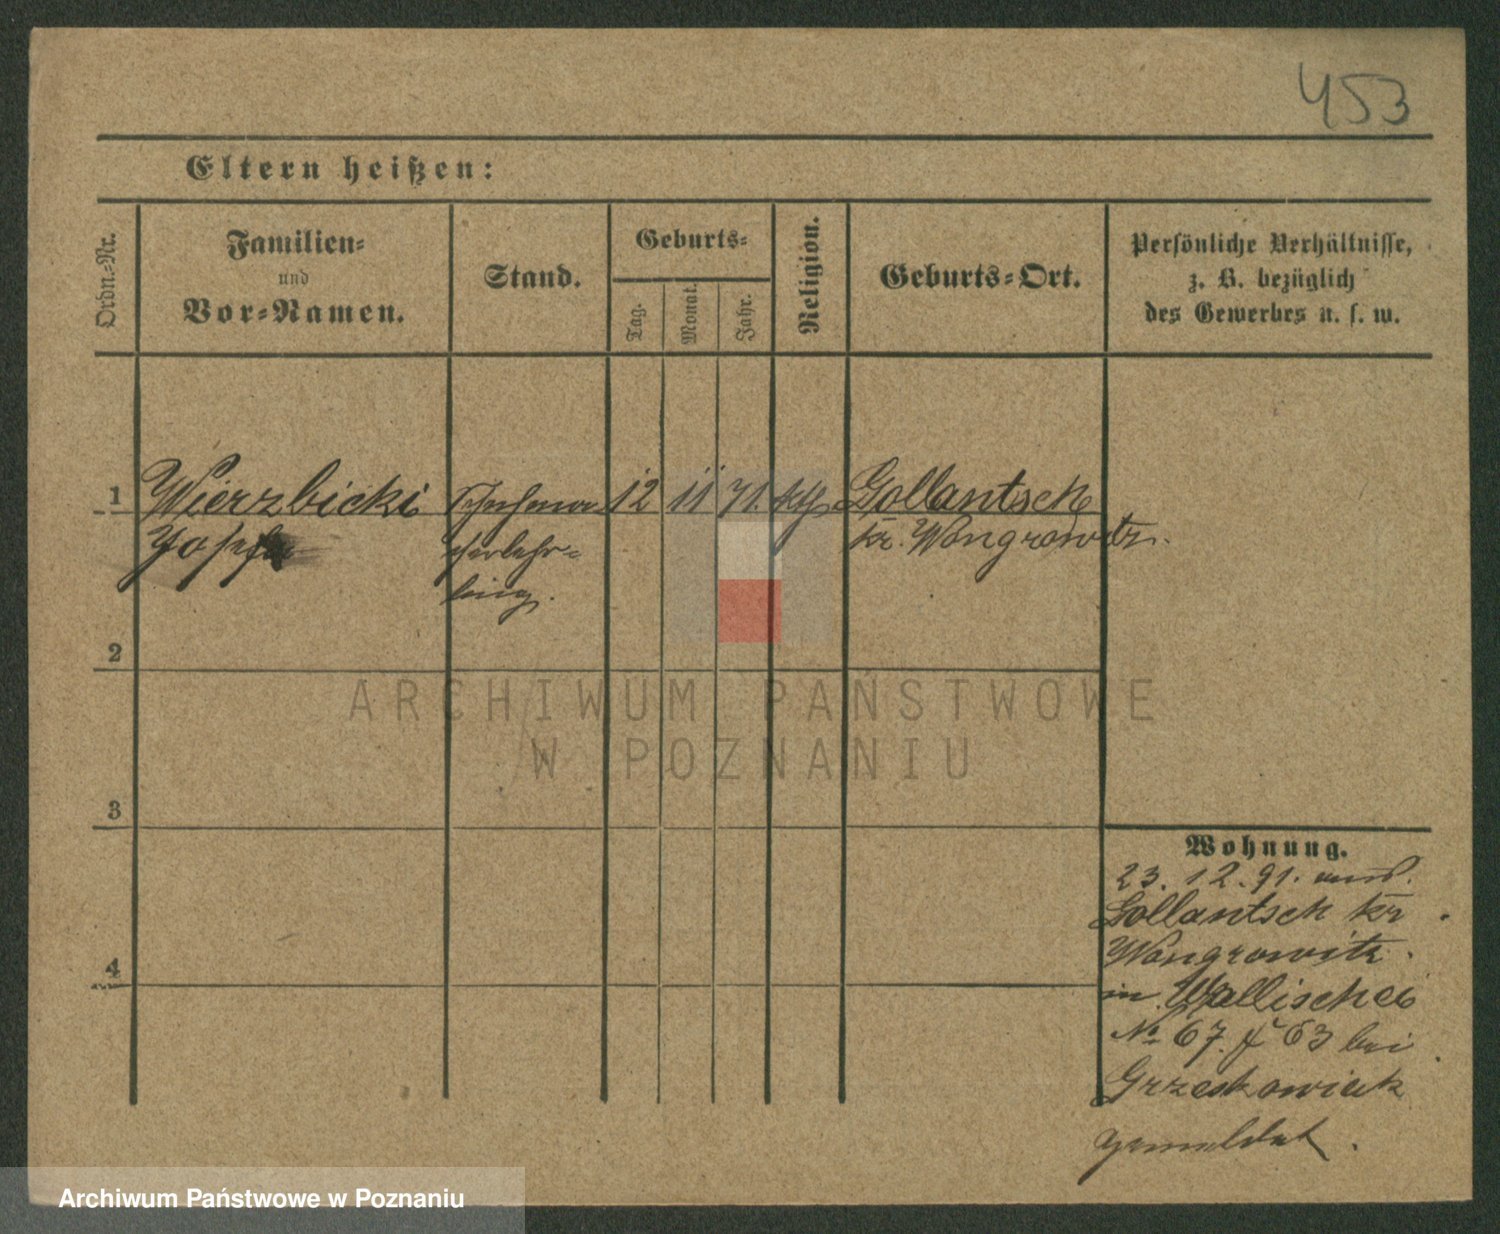 453
Eltern heißen:
Ordn.-Nr.
Familien-
und
Vor-Namen.
Stand.
Geburts-
Tag.
Monat.
Jahr.
Religion.
Geburts-Ort.
Persönliche Verhältnisse,
z. B. bezüglich
des Gewerbes u. s. w.
1 Wierzbicki 12 11 71. kth Gollantsch
Josef Kr. Wongrowitz.
ling.
2
ARCHIWUM PAŃSTWOWE
W POZNANIU
3
Wohnung.
23. 12. 91. aus
Gollantsch Kr
Wongrowitz.
4
in Wallischei
No 67. 63 bei
Grzeskowiak
gemeldet.
Archiwum Państwowe w Poznaniu